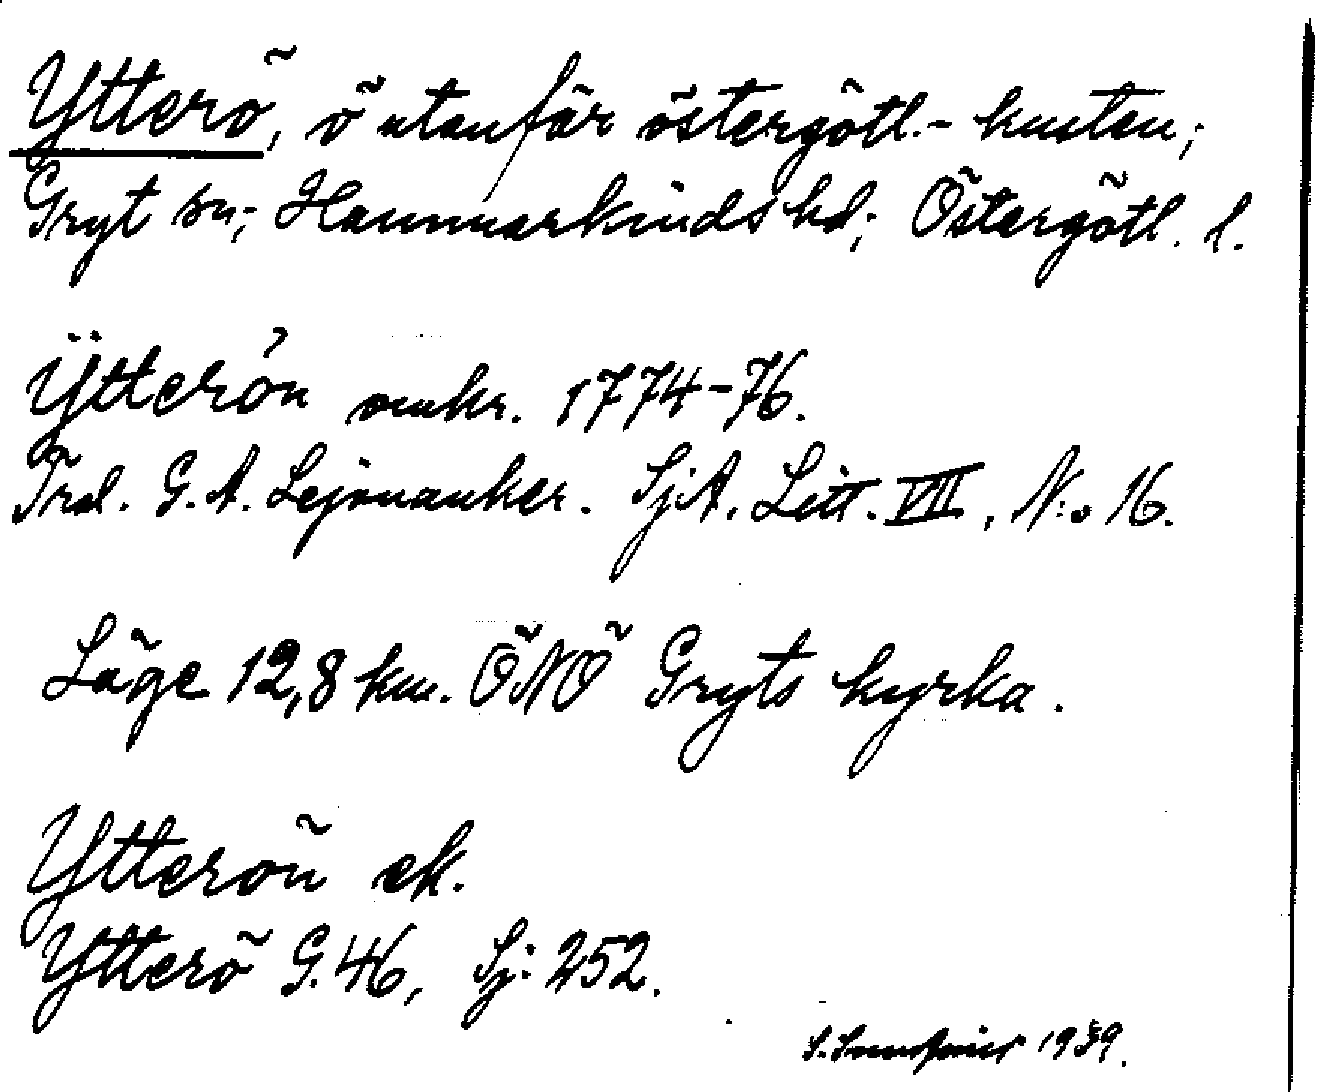 Ytterö, ö utanför östergötl.- kusten;
Gryt sn; Hammarkinds hd; Östergötl. l.
Ÿtterön omkr. 1774-76.
Trol. G.A. Lejonanker. SjA. Litt. VIII, N:o 16.
Läge 12,8 km. ÖNÖ Gryts kyrka.
Ytterön ek.
Ytterö G.46, Sj: 252.
S. 1939.